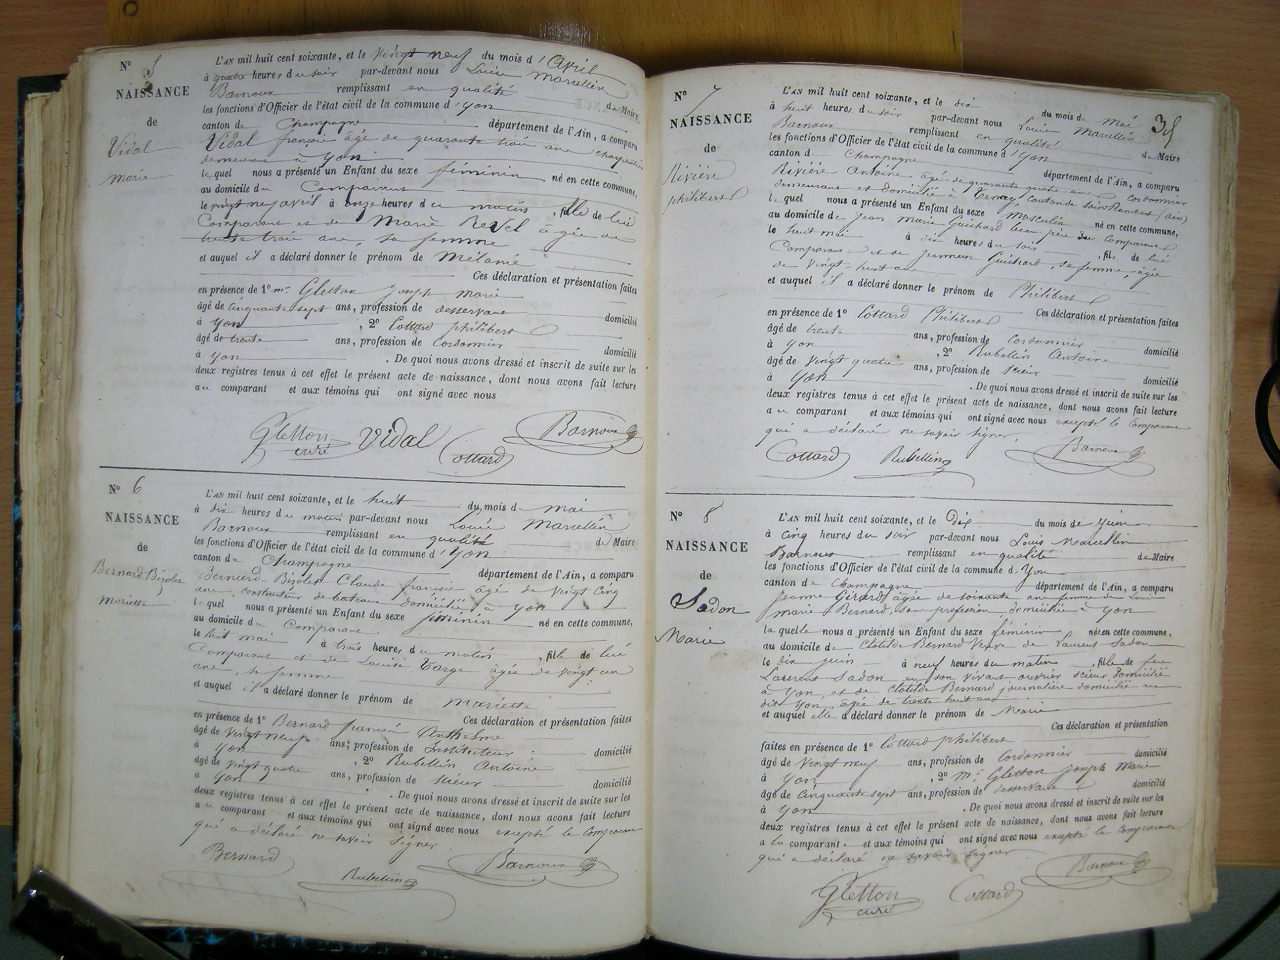 N° 5
NAISSANCE
de
Vidal
marie
L'AN mil huit cent soixante, et le vingt neuf du mois d'Avril
à quatre heures du soir par-devant nous Louis Marcellin
Barnoux remplissant en qualité de Maire
les fonctions d'Officier de l'état civil de la commune d'Yon
canton de Champagne département de l'Ain, a comparu
Vidal françois âgé de quarante trois ans
demeurant à Yon
lequel nous a présenté un Enfant du sexe féminin né en cette commune,
au domicile du Comparant
le vingt neuf avril à onze heures du matin, fille de lui
Comparant et de Marie Revel âgée de
trente trois ans, sa femme
et auquel il a déclaré donner le prénom de Mélanie
Ces déclaration et présentation faites
en présence de 1° mr Gletton joseph marie
âgé de cinquante sept ans, profession de desservant domicilié
à Yon, 2° Cottard philibert
âgé de trente ans, profession de Cordonnier domicilié
à Yon. De quoi nous avons dressé et inscrit de suite sur les
deux registres tenus à cet effet le présent acte de naissance, dont nous avons fait lecture
au comparant et aux témoins qui ont signé avec nous
Gletton curé Vidal Cottard Barnoux
N° 6
NAISSANCE
de
Bernard Bizolon
Mariette
L'AN mil huit cent soixante, et le huit du mois de mai
à dix heures du matin par-devant nous Louis Marcellin
Barnoux remplissant en qualité de Maire
les fonctions d'Officier de l'état civil de la commune d'Yon
canton de Champagne département de l'Ain, a comparu
Bernard Claude françois âgé de vingt cinq
ans, constructeur de bateaux domicilié à Yon
lequel nous a présenté un Enfant du sexe féminin né en cette commune,
au domicile du Comparant
le huit mai à trois heures du matin, fille de lui
Comparant et de Louise âgée de vingt un
ans, sa femme
et auquel il a déclaré donner le prénom de mariette
Ces déclaration et présentation faites
en présence de 1° Bernard francois Anthelme
âgé de vingt neuf ans, profession de Instituteur domicilié
à Yon, 2° Rubellin Antoine
âgé de vingt quatre ans, profession de scieur domicilié
à Yon. De quoi nous avons dressé et inscrit de suite sur les
deux registres tenus à cet effet le présent acte de naissance, dont nous avons fait lecture
au comparant et aux témoins qui ont signé avec nous excepté le Comparant
qui a déclaré ne savoir signer.
Bernard Rubellin Barnoux
N° 7
NAISSANCE
de
Rivière
philibert
35
L'AN mil huit cent soixante, et le dix du mois de mai
à huit heures du soir par-devant nous Louis Marcellin
Barnoux remplissant en qualité de Maire
les fonctions d'Officier de l'état civil de la commune d'Yon
canton de Champagne département de l'Ain, a comparu
Rivière Antoine âgé de quarante quatre ans Cordonnier
demeurant et domicilié à Tenay, Canton de Saint Rambert (ain)
lequel nous a présenté un Enfant du sexe Masculin né en cette commune,
au domicile de Jean Marie Guichard beau père du Comparant
le huit mai à dix heures du soir, fils de lui
Comparant et de Guichard, sa femme, âgée
de vingt-huit ans
et auquel il a déclaré donner le prénom de Philibert
Ces déclaration et présentation faites
en présence de 1° Cottard Philibert
âgé de trente ans, profession de cordonnier domicilié
à Yon, 2° Rubellin Antoine
âgé de vingt quatre ans, profession de scieur domicilié
à Yon. De quoi nous avons dressé et inscrit de suite sur les
deux registres tenus à cet effet le présent acte de naissance, dont nous avons fait lecture
au comparant et aux témoins qui ont signé avec nous excepté le Comparant
qui a déclaré ne savoir signer.
Cottard Rubellin Barnoux
N° 8
NAISSANCE
de
Sadon
Marie
L'AN mil huit cent soixante, et le Dix du mois de juin
à Cinq heures du soir par-devant nous Louis Marcellin
Barnoux remplissant en qualité de Maire
les fonctions d'Officier de l'état civil de la commune d'Yon
canton de Champagne département de l'Ain, a comparu
jeanne Girard, âgée de soixante ans
marie Bernard, profession domiciliée à Yon
laquelle nous a présenté un Enfant du sexe féminin né en cette commune,
au domicile de Clotilde Bernard Veuve de Laurent Sadon
le dix juin à neuf heures du matin, fille de feu
Laurent Sadon en son vivant ouvrier scieur domicilié
à Yon, et de Clotilde Bernard journalière domiciliée au
dit Yon, âgée de trente huit ans
et auquel elle a déclaré donner le prénom de Marie
Ces déclaration et présentation
faites en présence de 1° Cottard philibert
âgé de Vingt neuf ans, profession de Cordonnier domicilié
à Yon, 2° Mr Gletton joseph Marie
âgé de Cinquante sept ans, profession de desservant domicilié
à Yon. De quoi nous avons dressé et inscrit de suite sur les
deux registres tenus à cet effet le présent acte de naissance, dont nous avons fait lecture
a la comparante et aux témoins qui ont signé avec nous excepté la Comparante
qui a déclaré ne savoir signer
Gletton curé Cottard Barnoux